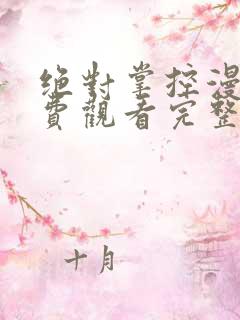 絕對掌控漫
費觀看完整
十月